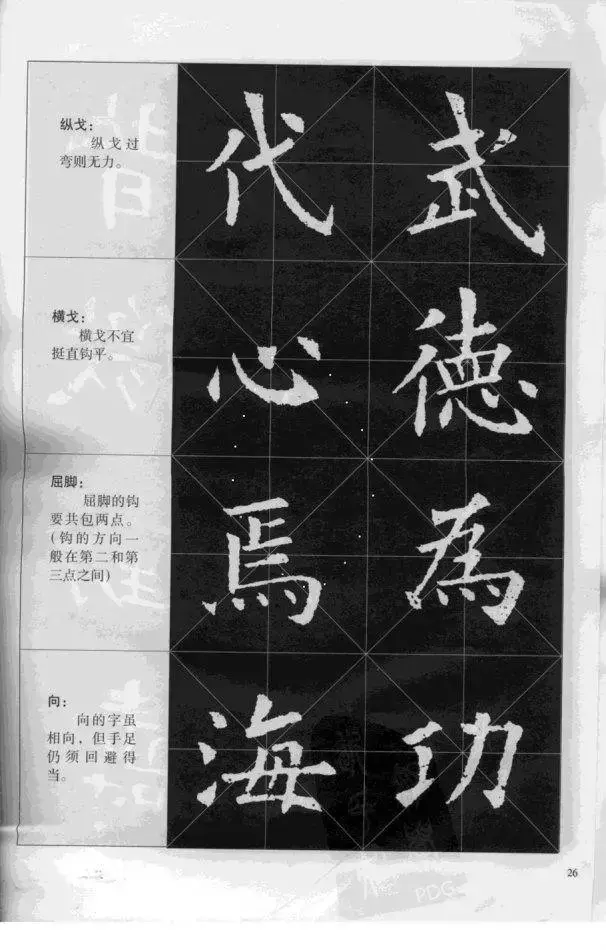 纵戈：
纵戈过
弯则无力。
代武
横戈：
横戈不宜
挺直钩平。
心德
屈脚：
屈脚的钩
要共包两点。
(钩的方向一
般在第二和第
三点之间)
焉為
向：
向的字虽
相向，但手足
仍须回避得
当。
海功
26
PDG